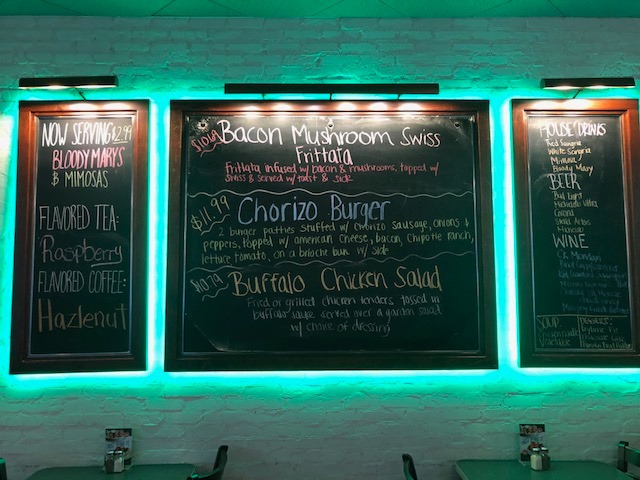 NOW SERVING $2.99
BLOODY MARYS
$ MIMOSAS
FLAVORED TEA:
Raspberry
FLAVORED COFFEE:
Hazlenut
Bacon Mushroom Swiss
Frittata
Frittata infused w/ bacon & mushrooms, topped w/
Swiss & served w/ toast & side
$11.99
Chorizo Burger
2 burger patties stuffed w/ chorizo sausage, onions &
peppers, topped w/ american cheese, bacon, chipotle ranch,
lettuce tomato, on a brioche bun w/ side
Buffalo Chicken Salad
Fried or grilled chicken tenders tossed in
buffalo sauce served over a garden salad
w/ choice of dressing
HOUSE DRINKS
Red Sangria
White Sangria
Mimosa
Bloody Mary
BEER
Bud Light
Michelob Ultra
Corona
Stella Artois
WINE
SOUP
Vegetable